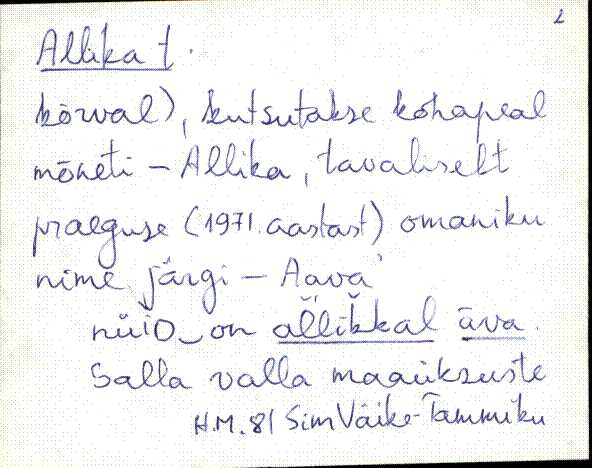 2
Allika t.
kõrval), kutsutakse kohapeal
mõneti – Allika, tavaliselt
praeguse (1971. aastast) omaniku
nime järgi – Aava
nüiD on al̆lik̆kal āva.
Salla valla maaüksuste
H.M. 81 Sim Väike-Tammiku